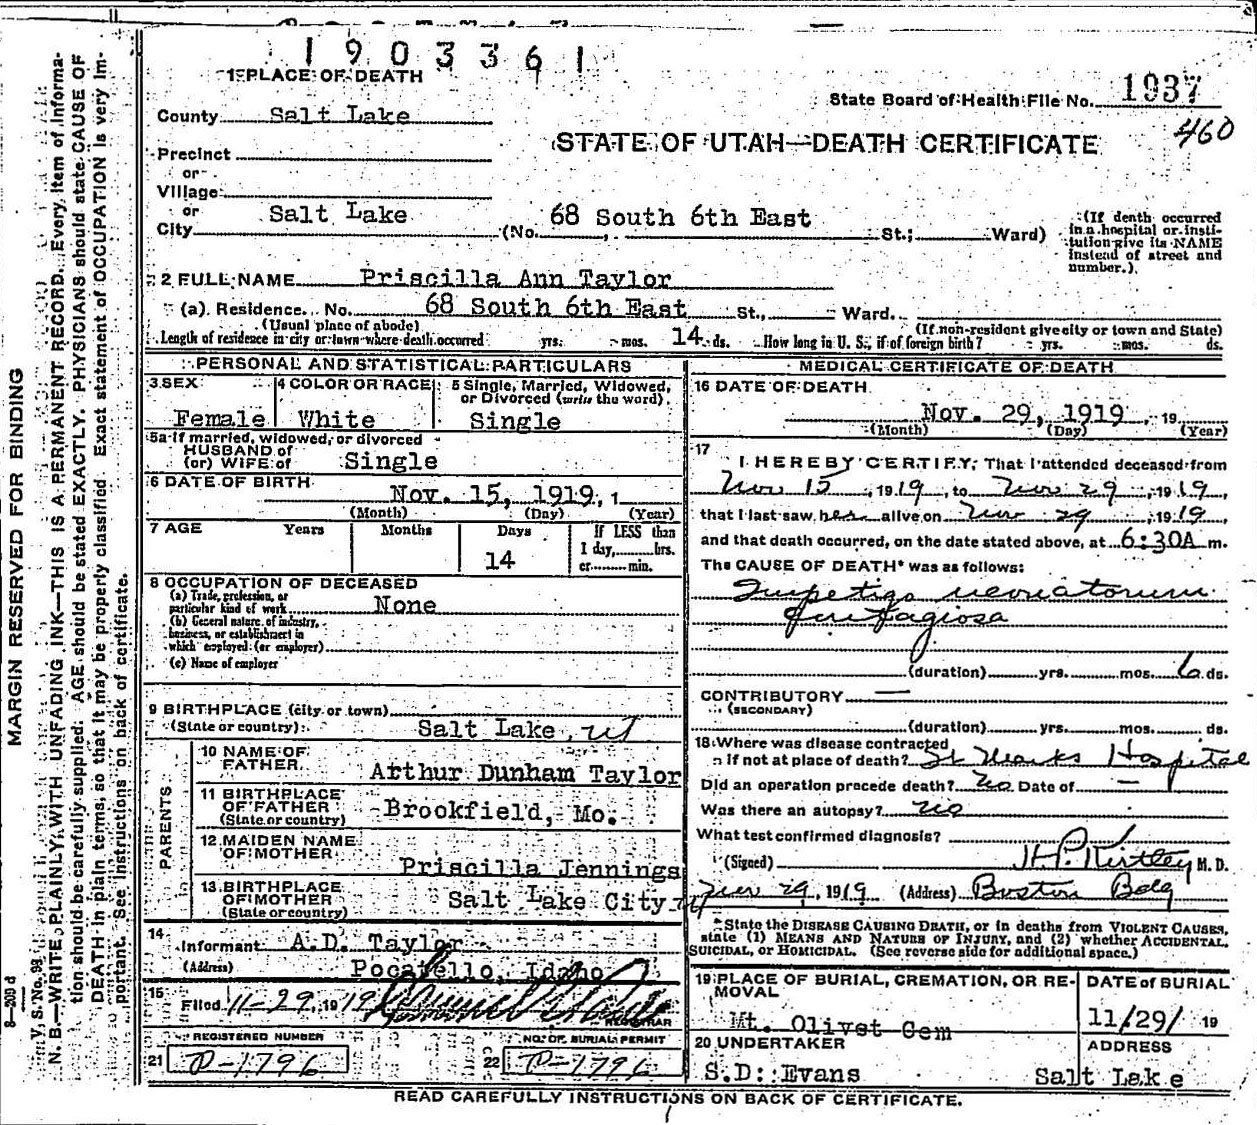 1903361
1 PLACE OF DEATH
State Board of Health File No. 1937
County Salt Lake
460
STATE OF UTAH—DEATH CERTIFICATE
Precinct
or
Village
or
City Salt Lake (No. 68 South 6th East St.; Ward)
(If death occurred in a hospital or institution give its NAME instead of street and number.)
2 FULL NAME Priscilla Ann Taylor
(a) Residence. No. 68 South 6th East St., Ward.
(Usual place of abode) (If non-resident give city or town and State)
Length of residence in city or town where death occurred yrs. mos. 14 ds. How long in U. S., if of foreign birth? yrs. mos. ds.
PERSONAL AND STATISTICAL PARTICULARS
3 SEX 4 COLOR OR RACE 5 Single, Married, Widowed, or Divorced (write the word)
Female White Single
5a If married, widowed, or divorced
HUSBAND of
(or) WIFE of Single
6 DATE OF BIRTH
Nov. 15, 1919, 1
(Month) (Day) (Year)
7 AGE Years Months Days If LESS than
1 day, hrs.
14 or min.
8 OCCUPATION OF DECEASED
(a) Trade, profession, or
particular kind of work None
(b) General nature of industry,
business, or establishment in
which employed (or employer)
(c) Name of employer
9 BIRTHPLACE (city or town)
(State or country) Salt Lake, UT
PARENTS
10 NAME OF
FATHER Arthur Dunham Taylor
11 BIRTHPLACE
OF FATHER
(State or country) Brookfield, Mo.
12 MAIDEN NAME
OF MOTHER Priscilla Jennings
13 BIRTHPLACE
OF MOTHER
(State or country) Salt Lake City
14
Informant A.D. Taylor
(Address) Pocatello, Idaho
15
Filed 11-29, 1919
REGISTRAR
REGISTERED NUMBER NO. OF BURIAL PERMIT
21 D-1796 22 D-1796
MEDICAL CERTIFICATE OF DEATH
16 DATE OF DEATH
Nov. 29, 1919, 19
(Month) (Day) (Year)
17
I HEREBY CERTIFY, That I attended deceased from
Nov 15, 1919, to Nov 29, 1919,
that I last saw her alive on Nov 29, 1919
and that death occurred, on the date stated above, at 6:30A m.
The CAUSE OF DEATH* was as follows:
Impetigo neonatorum
contagiosa
(duration) yrs. mos. 6 ds.
CONTRIBUTORY —
(SECONDARY)
(duration) yrs. mos. ds.
18 Where was disease contracted
if not at place of death? St Marks Hospital
Did an operation precede death? No Date of —
Was there an autopsy? No
What test confirmed diagnosis?
(Signed) H.P. Kirtley M. D.
Nov 29, 1919 (Address) Boston Bdg
*State the DISEASE CAUSING DEATH, or in deaths from VIOLENT CAUSES,
state (1) MEANS AND NATURE OF INJURY, and (2) whether ACCIDENTAL,
SUICIDAL, or HOMICIDAL. (See reverse side for additional space.)
19 PLACE OF BURIAL, CREMATION, OR REMOVAL DATE of BURIAL
Mt. Olivet Cem 11/29/ 19
20 UNDERTAKER ADDRESS
S.D. Evans Salt Lake
READ CAREFULLY INSTRUCTIONS ON BACK OF CERTIFICATE.
MARGIN RESERVED FOR BINDING
V. S. No. 98
N. B.—WRITE PLAINLY, WITH UNFADING INK—THIS IS A PERMANENT RECORD. Every item of informa-
tion should be carefully supplied. AGE should be stated EXACTLY. PHYSICIANS should state CAUSE OF
DEATH in plain terms, so that it may be properly classified. Exact statement of OCCUPATION is very im-
portant. See instructions on back of certificate.